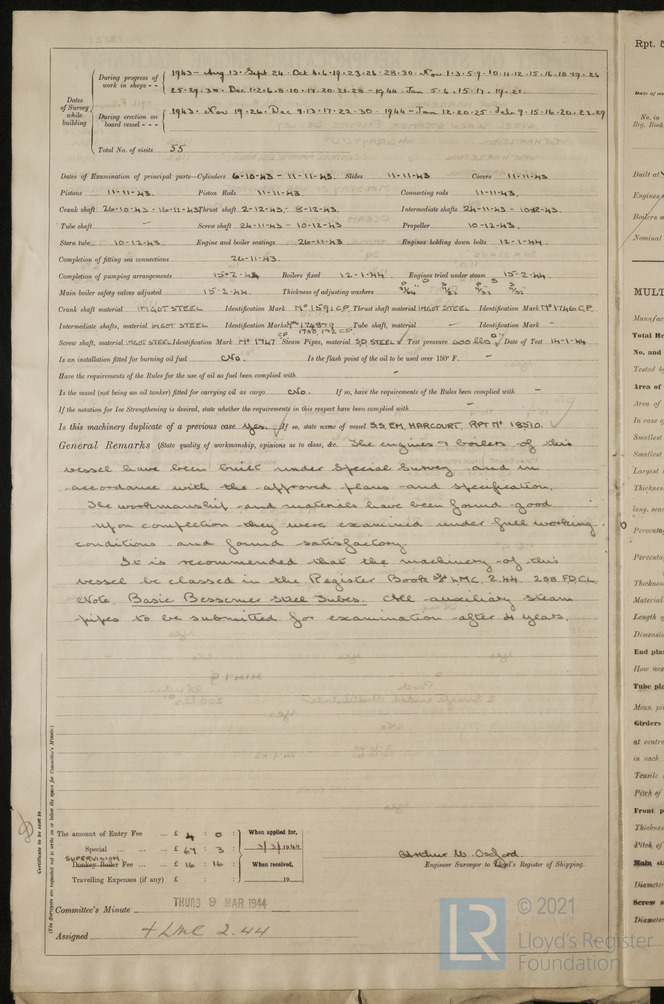 During progress of work in shops - - 1943 - Aug 13 · Sept 24 · Oct 4·6·19·23·26·28·30 · Nov 1·3·5·9·10·11·12·15·16·18·19·24
25·29·30 · Dec 1·2·6·8·10·17·20·21·28 - 1944 Jan 5·6·15·17·19·21.
Dates of Survey while building
During erection on board vessel - - - 1943 · Nov 19·26 · Dec 9·13·17·22·30 - 1944 - Jan 12·20·25 · Feb 9·15·16·20·23·29
Total No. of visits 55
Dates of Examination of principal parts—Cylinders 6-10-43 - 11-11-43. Slides 11-11-43 Covers 11-11-43
Pistons 11-11-43. Piston Rods 11-11-43. Connecting rods 11-11-43.
Crank shaft 26-10-43 - 16-11-43 Thrust shaft 2-12-43 - 8-12-43. Intermediate shafts 24-11-43 - 10-12-43.
Tube shaft - Screw shaft 24-11-43 - 10-12-43 Propeller 10-12-43.
Stern tube 10-12-43. Engine and boiler seatings 26-11-43. Engines holding down bolts 12-1-44.
Completion of fitting sea connections 26-11-43.
Completion of pumping arrangements 15-2-44 Boilers fixed 12-1-44. Engines tried under steam 15-2-44.
Main boiler safety valves adjusted 15-2-44. Thickness of adjusting washers
Crank shaft material INGOT STEEL Identification Mark No 1591 C.P. Thrust shaft material INGOT STEEL Identification Mark No 1746 C.P.
Intermediate shafts, material INGOT STEEL Identification Marks Tube shaft, material - Identification Mark -
Screw shaft, material INGOT STEEL Identification Mark No 1747 C.P. Steam Pipes, material S.D STEEL Test pressure 600 lbs Date of Test 14-1-44
Is an installation fitted for burning oil fuel No. Is the flash point of the oil to be used over 150° F. -
Have the requirements of the Rules for the use of oil as fuel been complied with -
Is the vessel (not being an oil tanker) fitted for carrying oil as cargo No. If so, have the requirements of the Rules been complied with -
If the notation for Ice Strengthening is desired, state whether the requirements in this respect have been complied with -
Is this machinery duplicate of a previous case Yes. If so, state name of vessel S.S. EM. HARCOURT. RPT No 18510.
General Remarks (State quality of workmanship, opinions as to class, &c. The engines & boilers of this
vessel have been built under Special Survey and in
accordance with the approved plans and specification.
The workmanship and materials have been found good.
Upon completion they were examined under full working
conditions and found satisfactory.
It is recommended that the machinery of this
vessel be classed in the Register Book LMC. 2.44. 2SB. FD. CL.
Note. Basic Bessemer Steel Tubes. All auxiliary steam
pipes to be submitted for examination after 4 years.
The amount of Entry Fee ... £ 4 : 0 : When applied for,
Special ... ... £ 67 : 3 : 3/3/1944
SUPERVISION
Donkey Boiler Fee ... ... £ 16 : 16 : When received,
Travelling Expenses (if any) £ : : 19
Arthur W. Oxford.
Engineer Surveyor to Lloyd's Register of Shipping.
Committee's Minute THURS 9 MAR 1944
Assigned + LMC 2.44
Certificate to be sent to
(The Surveyors are requested not to write on or below the space for Committee's Minute.)
© 2021
LR Lloyd's Register
Foundation
Rpt.
No. in
Reg. Book
Built at
Engines
Boilers
Nominal
MULT
Total He
No. and
Tested b
Area of
Area of
In case of
Smallest
Smallest
Largest
Thickness
long. seam
Percenta
Percenta
Thickness
Material
Length of
Dimensi
End plat
How are
Tube pla
Mean pi
Girders
at centre
in each
Tensile
Pitch of
Front p
Thickness
Pitch of
Main st
Diameter
Screw s
Diameter